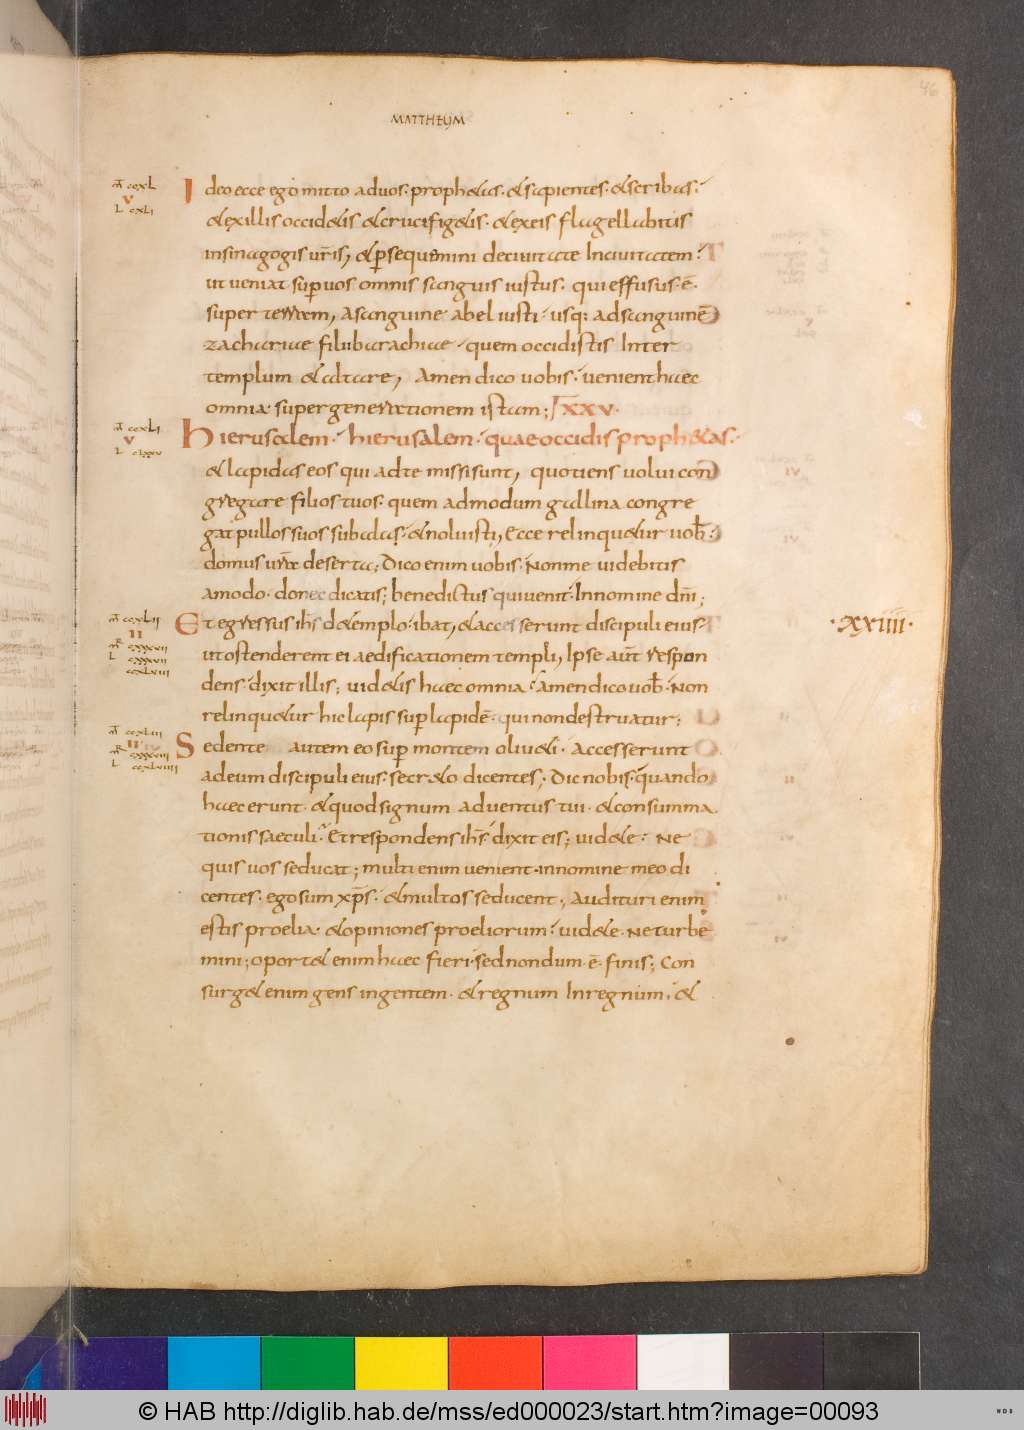 46
MATTHEUM
Ideo ecce ego mitto aduos· prophetas· et sapientes· et scribas·
et exillis occidetis et crucifigetis· et exeis flagellabitis
insinagogis ur̅is, et p̱sequemini deciuitate Inciuitatem·
ut ueniat sup̱uos omnis sanguis iustus· qui effusus· ē·
super terram, Asanguine abel iusti· usq: adsanguinē
zachariae filii barachiae· quem occidistis Inter
templum et altare, Amen dico uobis· uenient haec
omnia super generationem istam; XXV·
Hierusalem· hierusalem· quae occidis prophetas·
et lapidas eos qui adte missi sunt, quotiens uolui con
gregare filios tuos· quem admodum gallina congre
gat pullos suos subalas· et noluisti, Ecce relinquetur uob̅·
domus ur̅a deserta; Dico enim uobis· Nonme uidebitis
amodo· donec dicatis; benedictus qui uenit· In nomine dn̅i;
Et egressus ih̅s detemplo· ibat, et accesserunt discipuli eius·
ut ostenderent ei aedificationem templi, Ipse aut̅ respon
dens· dixit illis; uidetis haec omnia· Amen dico uob̅· Non
relinquetur hic lapis sup̱ lapidē· qui non destruatur;
Sedente autem eo sup̱ montem oliueti· Accesserunt
adeum discipuli eius· secreto dicentes; Dic nobis· quando
haec erunt· et quod signum aduentus tui· et consumma
tionis saeculi· Et respondens ih̅s· dixit eis; uidete· Ne
quis uos seducat; multi enim uenient· in nomine meo di
centes· ego sum xp̅s· et multos seducent; Audituri enim
estis proelia· et opiniones proeliorum· uidete· Ne turbe
mini; oportet enim haec fieri· sed nondum· ē· finis; Con
surget enim gens ingentem· et regnum Inregnum· et
·xxiiii·
© HAB http://diglib.hab.de/mss/ed000023/start.htm?image=00093